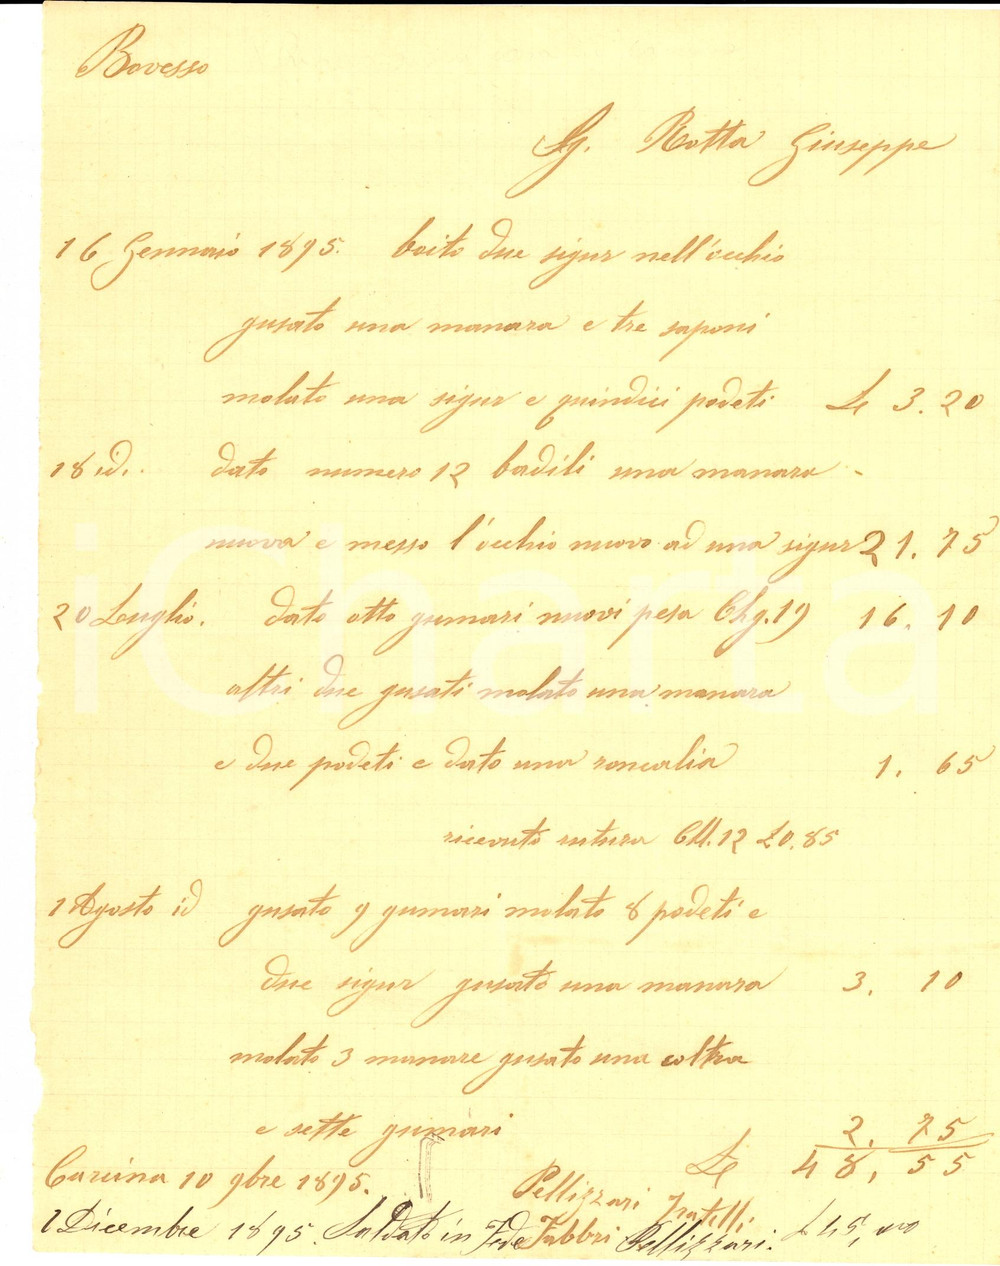 Bovesso
Sg. Rotta Giuseppe
16 Gennaio 1895. boito due sigur nell'occhio
gusato una manara e tre saponi
molato una sigur e quindici podeti L 3.20
18 id. dato numero 12 badili una manara -
nuova e messo l'occhio nuovo ad una sigur 21.75
20 Luglio. dato otto gumari nuovi pesa Chg.19 16.10
altri due gusati molato una manara
e due podeti e dato una roncalia 1.65
ricevuto Cll.12 £0.85
1 Agosto id gusato 9 gumari molato 8 podeti e
due sigur gusato una manara 3.10
molato 3 manare gusato una coltra
e sette gumari 2.75
L 48,55
Carcina 10 9bre 1895. Pellizzari Fratelli
Fabbri
1 Dicembre 1895. Saldato in Fede Pellizzari. £ 45,00
iCharta